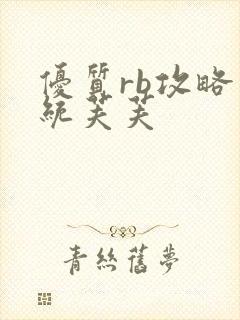 優質rb攻略
統芙芙
青絲舊夢